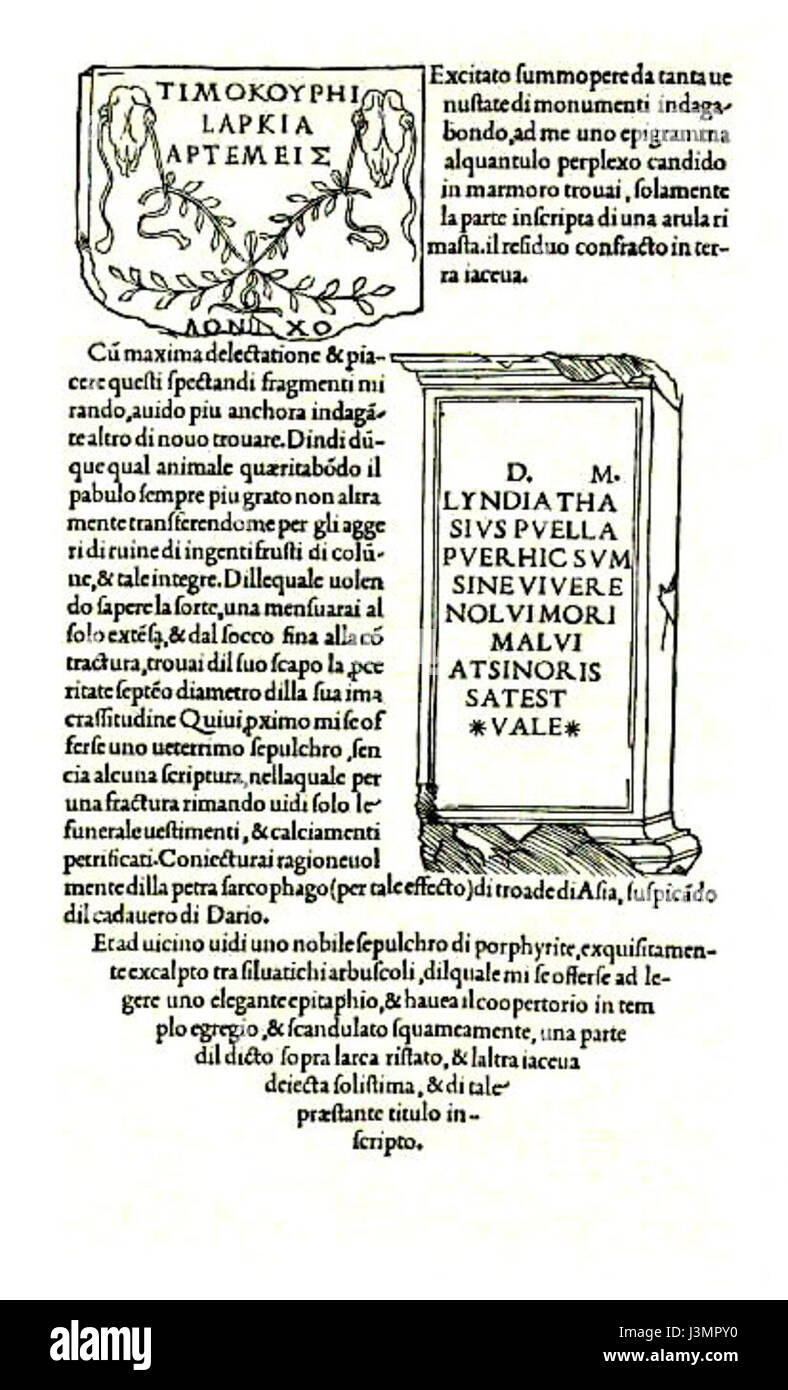 ΤΙΜΟΚΟΥΡΗΙ
LΑΡΚΙΑ
ΑΡΤΕΜΕΙΣ
ΛΟΝΙ ΧΟ
Excitato summopere da tanta ue
nustate di monumenti indaga-
bondo, ad me uno epigramma
alquantulo perplexo candido
in marmoro trouai, solamente
la parte inscripta di una arula ri
masta. il residuo confracto in ter-
ra iaceua.
Cũ maxima delectatione & pia-
cere questi spectandi fragmenti mi
rando, auido piu anchora indagã-
te altro di nouo trouare. Dindi dũ-
que qual animale quæritabõdo il
pabulo sempre piu grato non altra
mente transferendome per gli agge
ri di ruine di ingenti frusti di colũ-
ne, & tale integre. Dillequale uolen
do sapere la sorte, una mensuarai al
solo extẽsa, & dal socco fina alla cõ
tractura, trouai dil suo scapo la ꝓce
ritate septẽo diametro dilla sua ima
crassitudine Quiui ꝓximo mi se of
ferse uno ueterrimo sepulchro, sen
cia alcuna scriptura, nellaquale per
una fractura rimando uidi solo le
funerale uestimenti, & calciamenti
petrificati. Coniecturai ragioneuol
mente dilla petra sarcophago (per tale effecto) di troade di Asia, suspicãdo
dil cadauero di Dario.
D. M.
LYNDIA THA
SIVS PVELLA
PVER HIC SVM
SINE VIVERE
NOLVI MORI
MALVI
AT SI NORIS
SAT EST
*VALE*
Et ad uicino uidi uno nobile sepulchro di porphyrite, exquisitamen-
te excalpto tra siluatichi arbuscoli, dilquale mi se offerse ad le-
gere uno elegante epitaphio, & hauea il coopertorio in tem
plo egregio, & scandulato squameamente, una parte
dil dicto sopra larca ristato, & laltra iaceua
deiecta solistima, & di tale
præstante titulo in-
scripto.
alamy
Image ID: J3MPY0
www.alamy.com